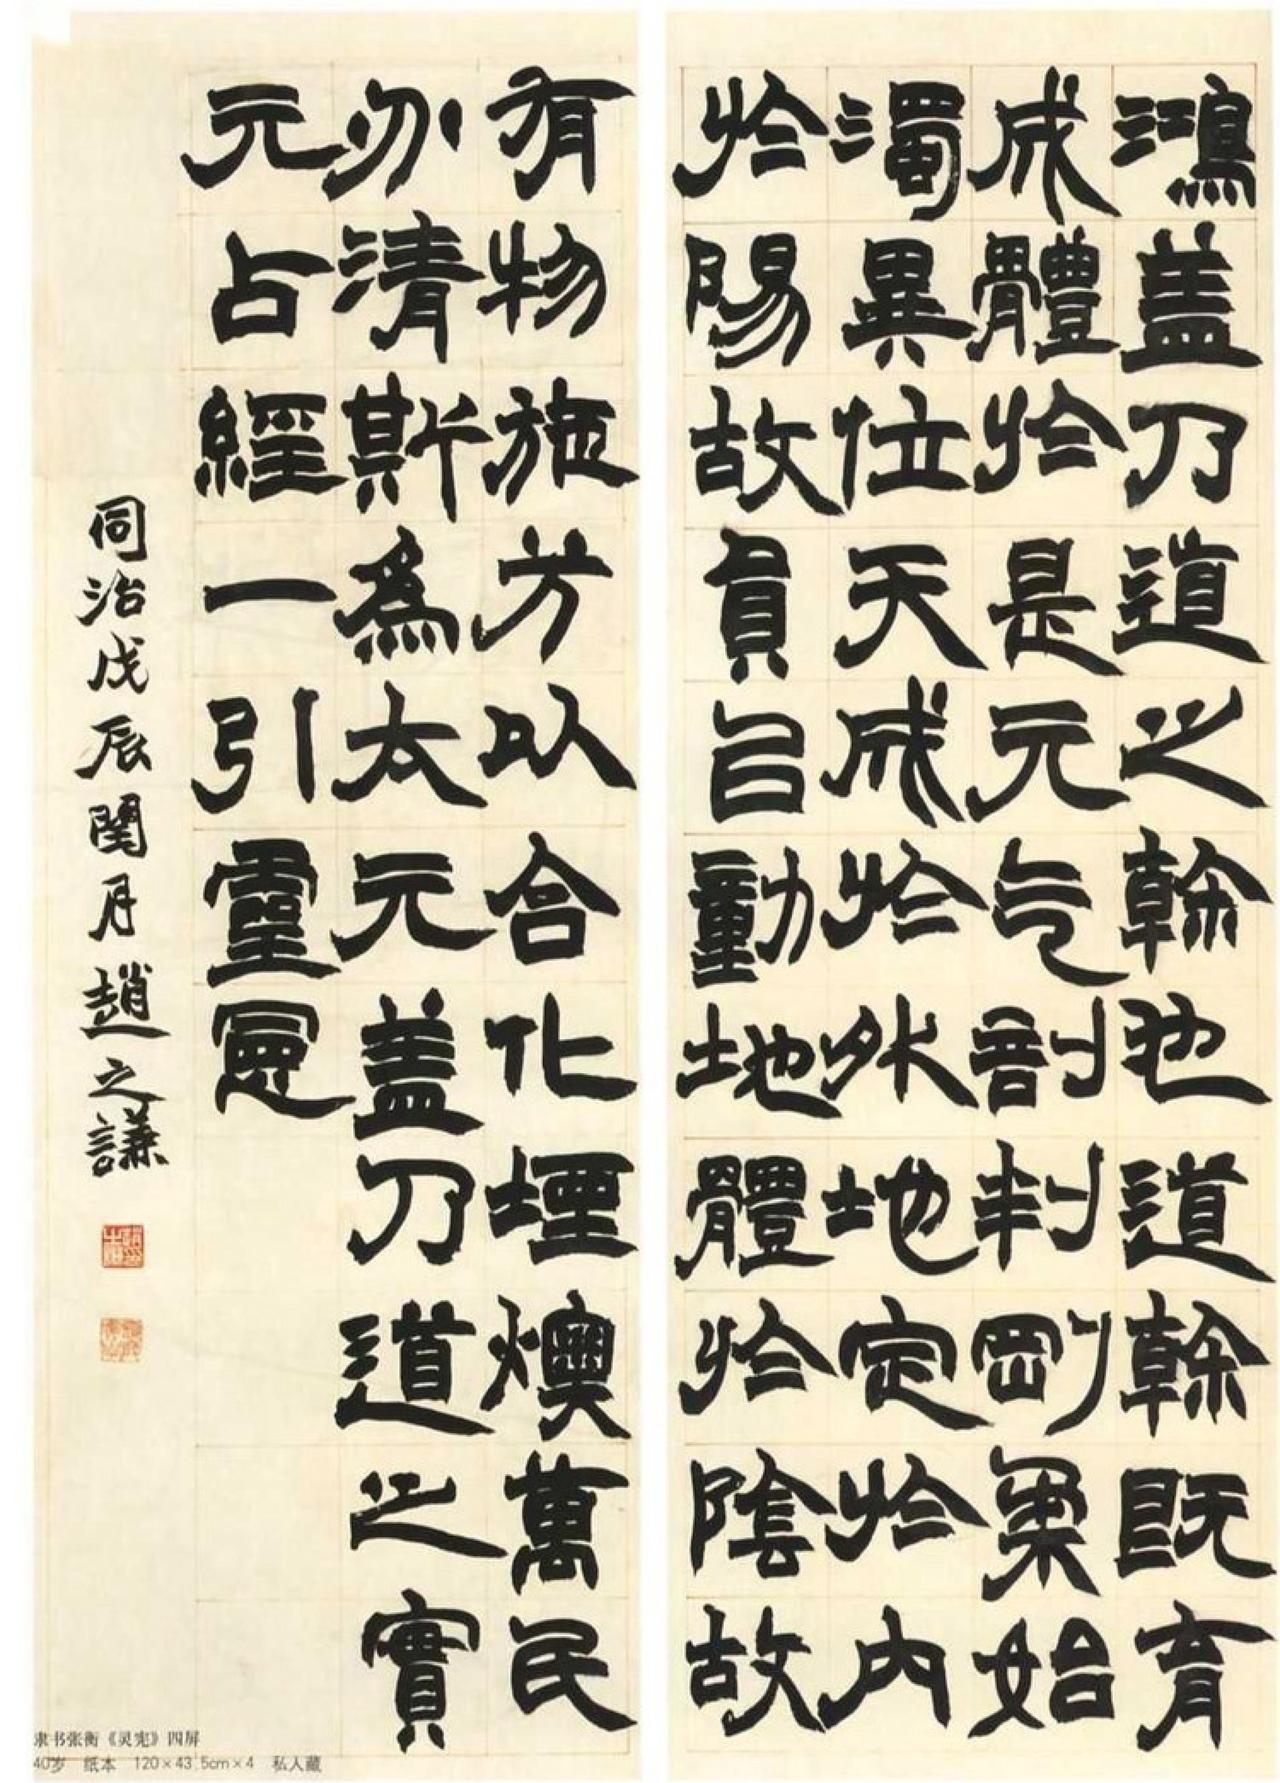 鴻盖乃道之榦也道榦既育
成體於是元气剖判剛柔始
濁異位天成於外地定於內
於陽故員㠯動地體於陰故
有物施芳以合化堙燠萬民
亦清斯為太元盖乃道之實
元占經一引靈憲
同治戊辰閏月趙之謙
隶书张衡《灵宪》四屏
40岁 纸本 120×43.5cm×4 私人藏